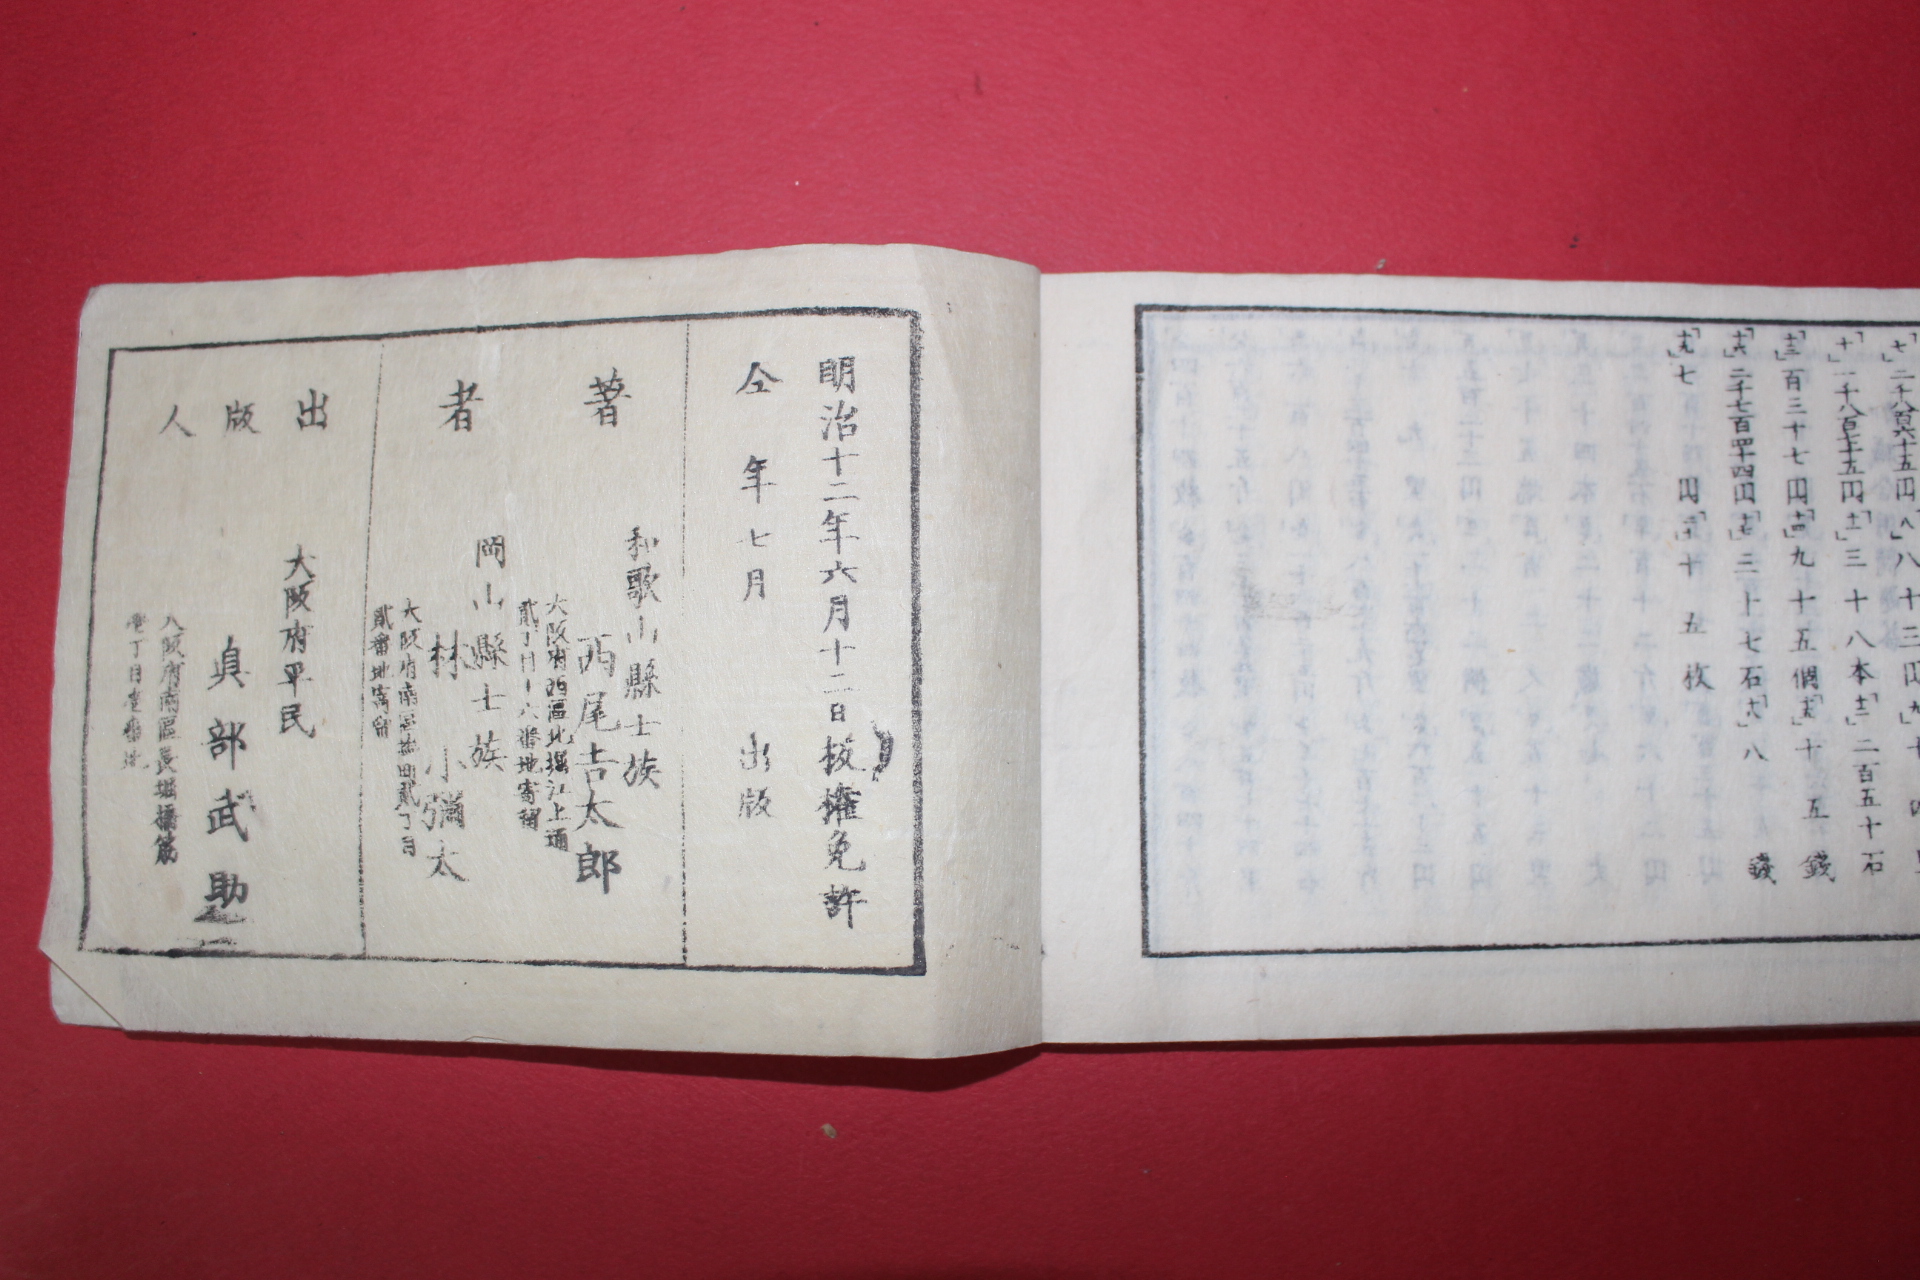 七」二千八百六十五円「八」八十三円「九」七
十」一千八百七十五円「十一」三十八本「十二」二百五十石
十三」百三十七円「十四」九十五個「十五」十五錢
十六」二千七百四十四円「十七」二十七石「十八」八錢
十九」七円「二十」十五枚
明治十二年六月十二日板權免許
仝年七月出版
著者
和歌山縣士族
西尾吉太郎
大阪府西區北堀江上通
貳丁目十六番地寄留
岡山縣士族
林小彌太
大阪府南區 貳丁目
貳番地寄留
出版人
大阪府平民
眞部武助
大阪府南區長堀橋筋
壱丁目壱番地